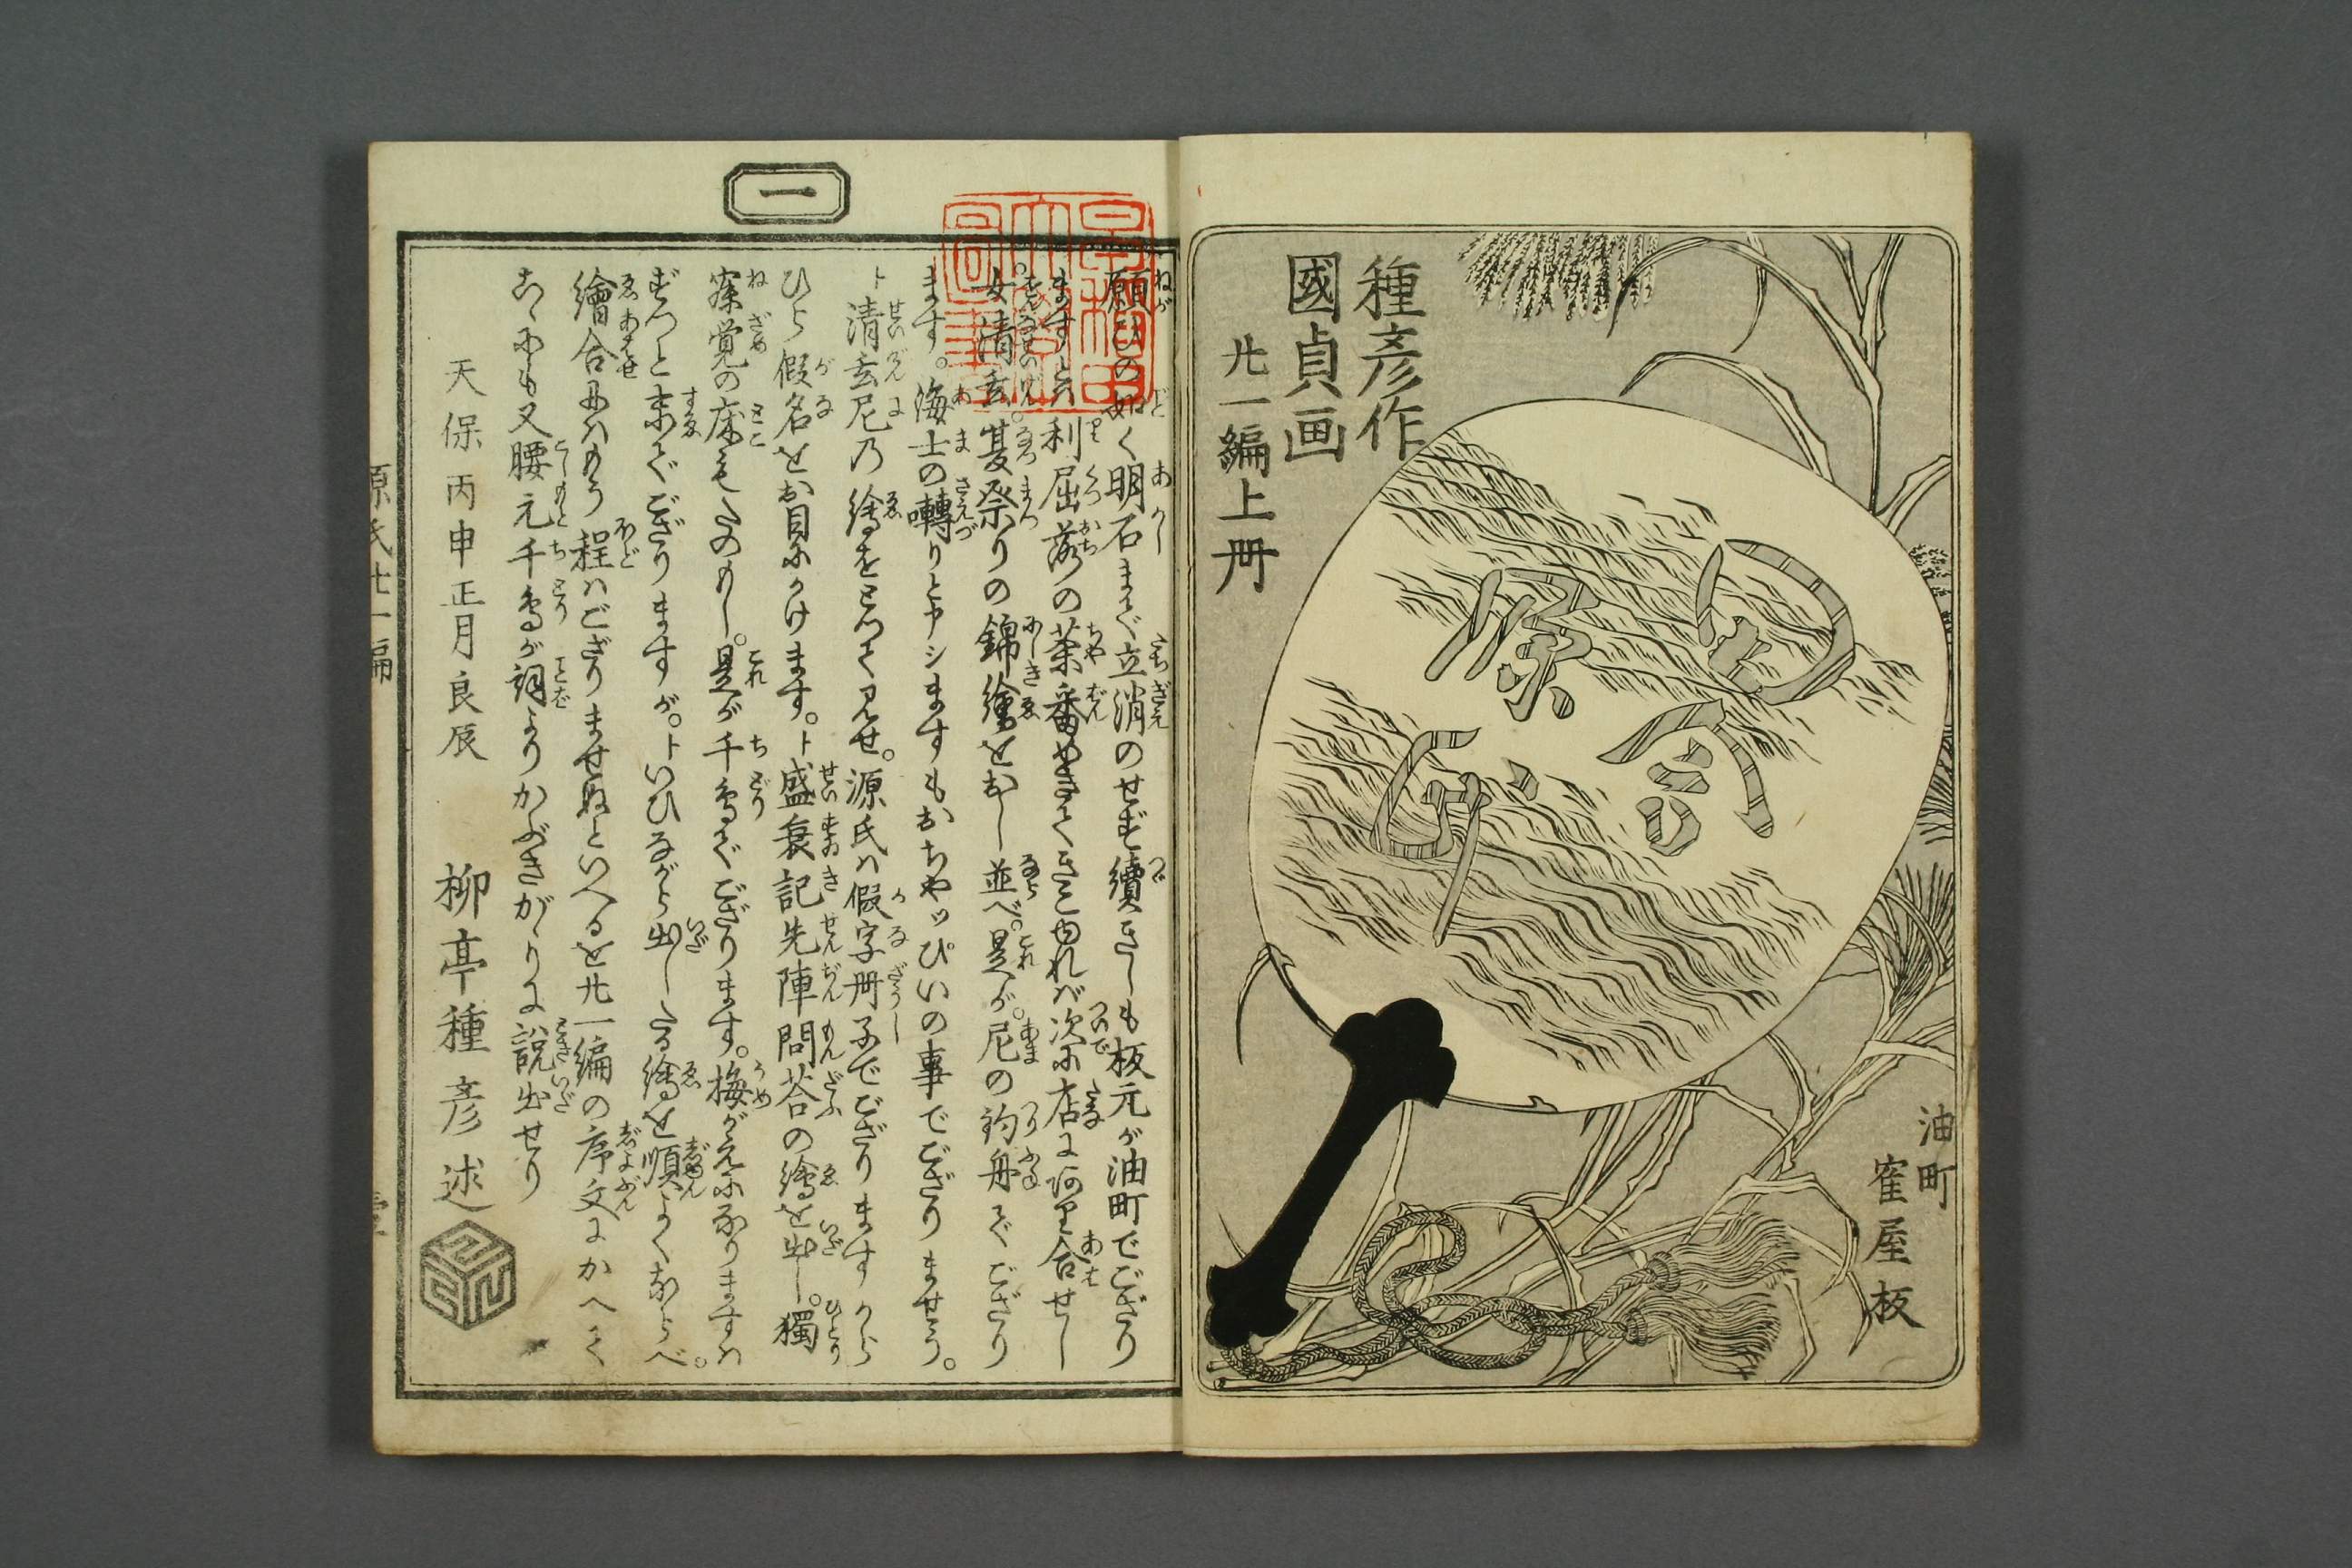 種彦作
國貞画
廿一編上冊
油町
窪屋板
一
願ひの如く明石まで立消のせず續きしも板元が油町でござり
ますとハ利屈落の茶番めきてくさこゆれバ次に店に
合せし
女清玄。夏祭りの錦繪とおし並べ。是が。尼の釣舟でござり
ます。海士の囀りと申シますもおちやッぴいの事でござりませう。
ト清玄尼乃繪をとつて見せ。源氏ハ假字冊子でござりますから
ひら假名をお目にかけます。ト盛衰記先陣問荅の繪を出し。獨
寐覚の床もたのもし。是が千鳥でござります。梅がえになりますハ
ずつと末でござりますが。トいひながら出したる繪を順よくならべ。
繪合
程ハござりませぬといへるを廿一編の序文にかへて
こゝにも又腰元千鳥が詞よりかぶきがゝりに説出せり
天保丙申正月良辰
柳亭種彦述
源氏廿一編